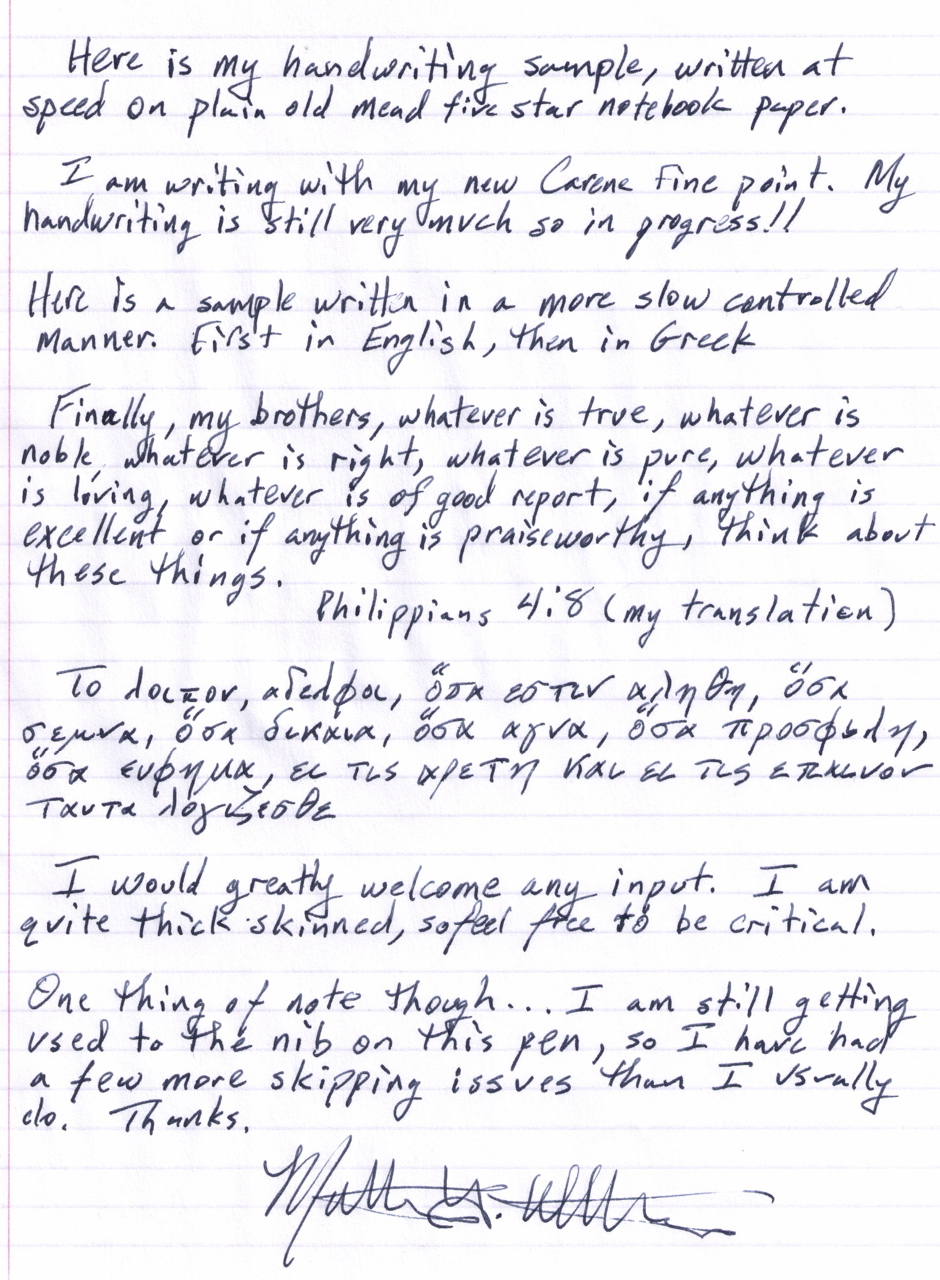 Here is my handwriting sample, written at
speed on plain old mead five star notebook paper.
I am writing with my new Carene Fine point. My
handwriting is still very much so in progress!!
Here is a sample written in a more slow controlled
manner. First in English, then in Greek
Finally, my brothers, whatever is true, whatever is
noble, whatever is right, whatever is pure, whatever
is loving, whatever is of good report, if anything is
excellent or if anything is praiseworthy, think about
these things.
Philippians 4:8 (my translation)
Το λοιπον, αδελφοι, ὅσα εστιν αληθη, ὅσα
σεμνα, ὅσα δικαια, ὅσα αγνα, ὅσα προσφιλη,
ὅσα ευφημα, ει τις αρετη και ει τις επαινον
ταυτα λογιζεσθε
I would greatly welcome any input. I am
quite thick skinned, so feel free to be critical.
One thing of note though... I am still getting
used to the nib on this pen, so I have had
a few more skipping issues than I usually
do. Thanks.